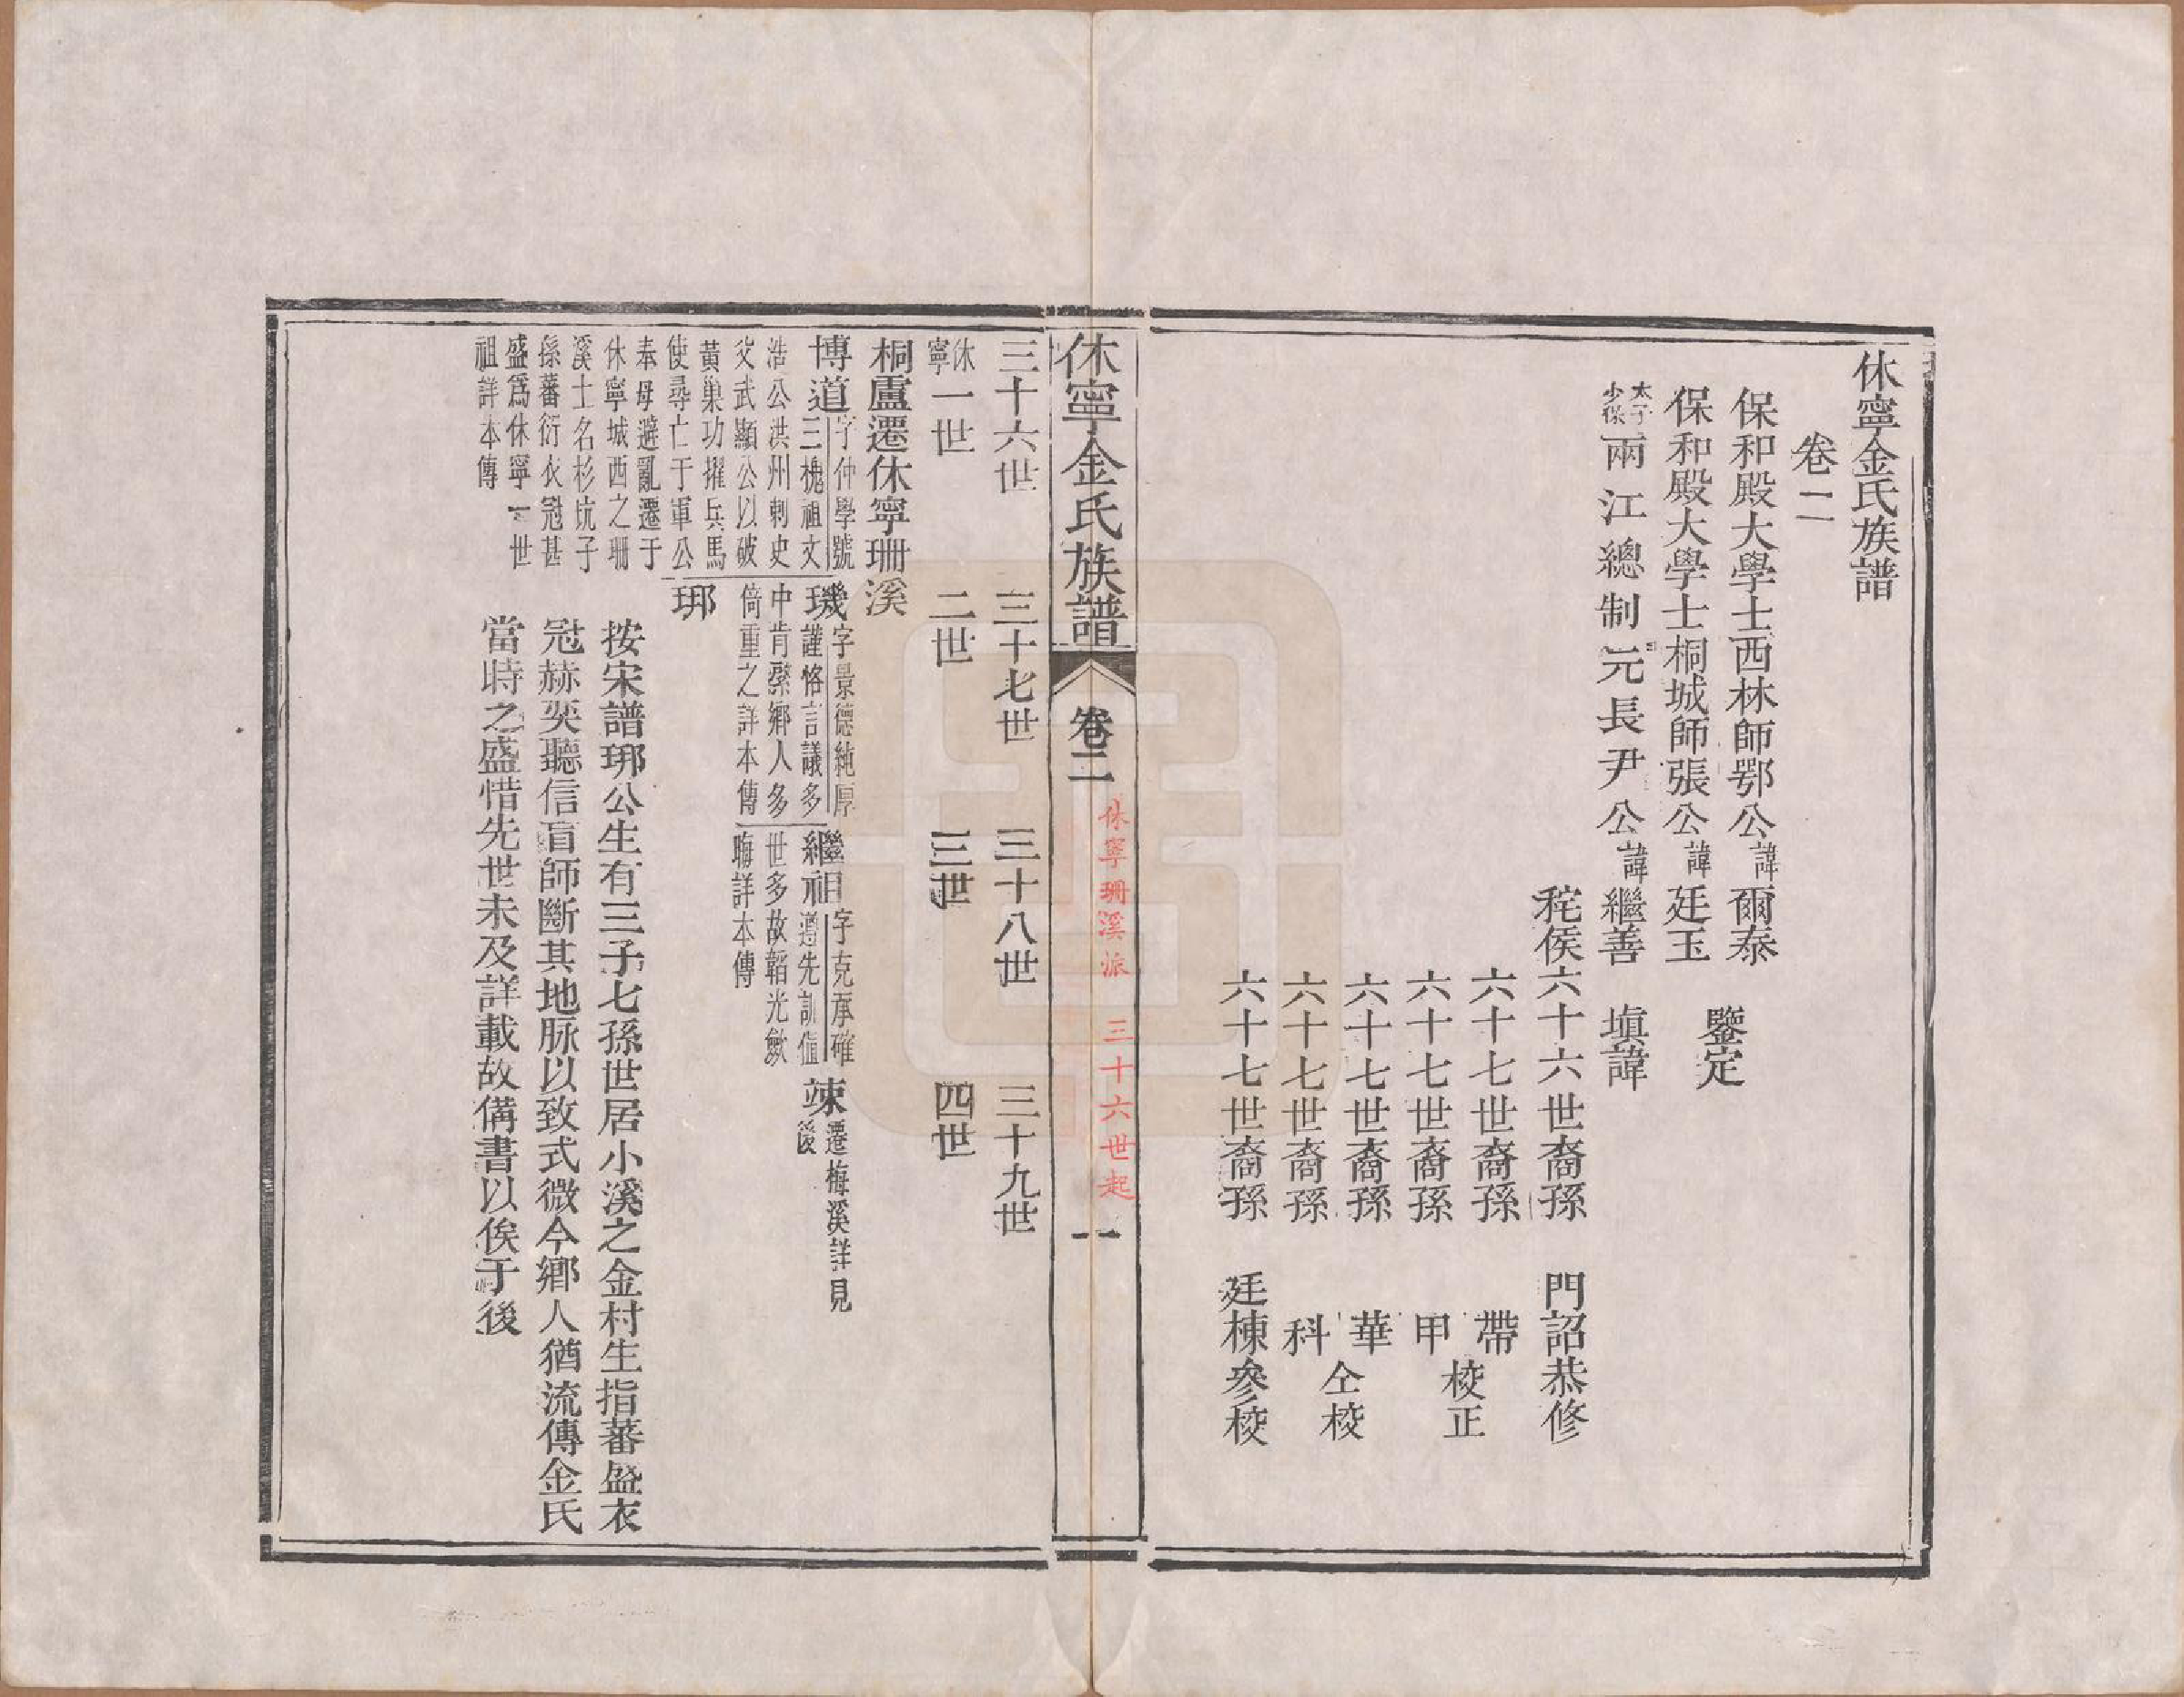 休寧金氏族譜
卷二
保和殿大學士西林師鄂公諱爾泰
保和殿大學士桐城師張公諱廷玉
鑒定
太子少保兩江總制元長尹公諱繼善 填諱
秺侯六十六世裔孫 門詔恭修
六十七世裔孫 帶
六十七世裔孫 甲
校正
六十七世裔孫 華
六十七世裔孫 科
仝校
六十七世裔孫 廷棟參校
休寧金氏族譜 卷二 休寧珊溪派 三十六世起 一
三十六世 三十七世 三十八世 三十九世
休寧一世 二世 三世 四世
桐廬遷休寧珊溪
博道 字仲學號
三槐祖文
浩公洪州刺史
父武顯公以破
黃巢功擢兵馬
使尋亡于軍公
奉母避亂遷于
休寧城西之珊
溪土名杉坑子
孫蕃衍衣冠甚
盛爲休寧一世
祖詳本傳
璣 字景德純厚
謹恪言議多
中肯綮鄉人多
倚重之詳本傳
琊
繼祖 字克承確
遵先訓值
世多故韜光歛
晦詳本傳
竦 遷梅溪詳見
後
按宋譜琊公生有三子七孫世居小溪之金村生指蕃盛衣
冠赫奕聽信盲師斷其地脉以致式微今鄉人猶流傳金氏
當時之盛惜先世未及詳載故備書以俟于後